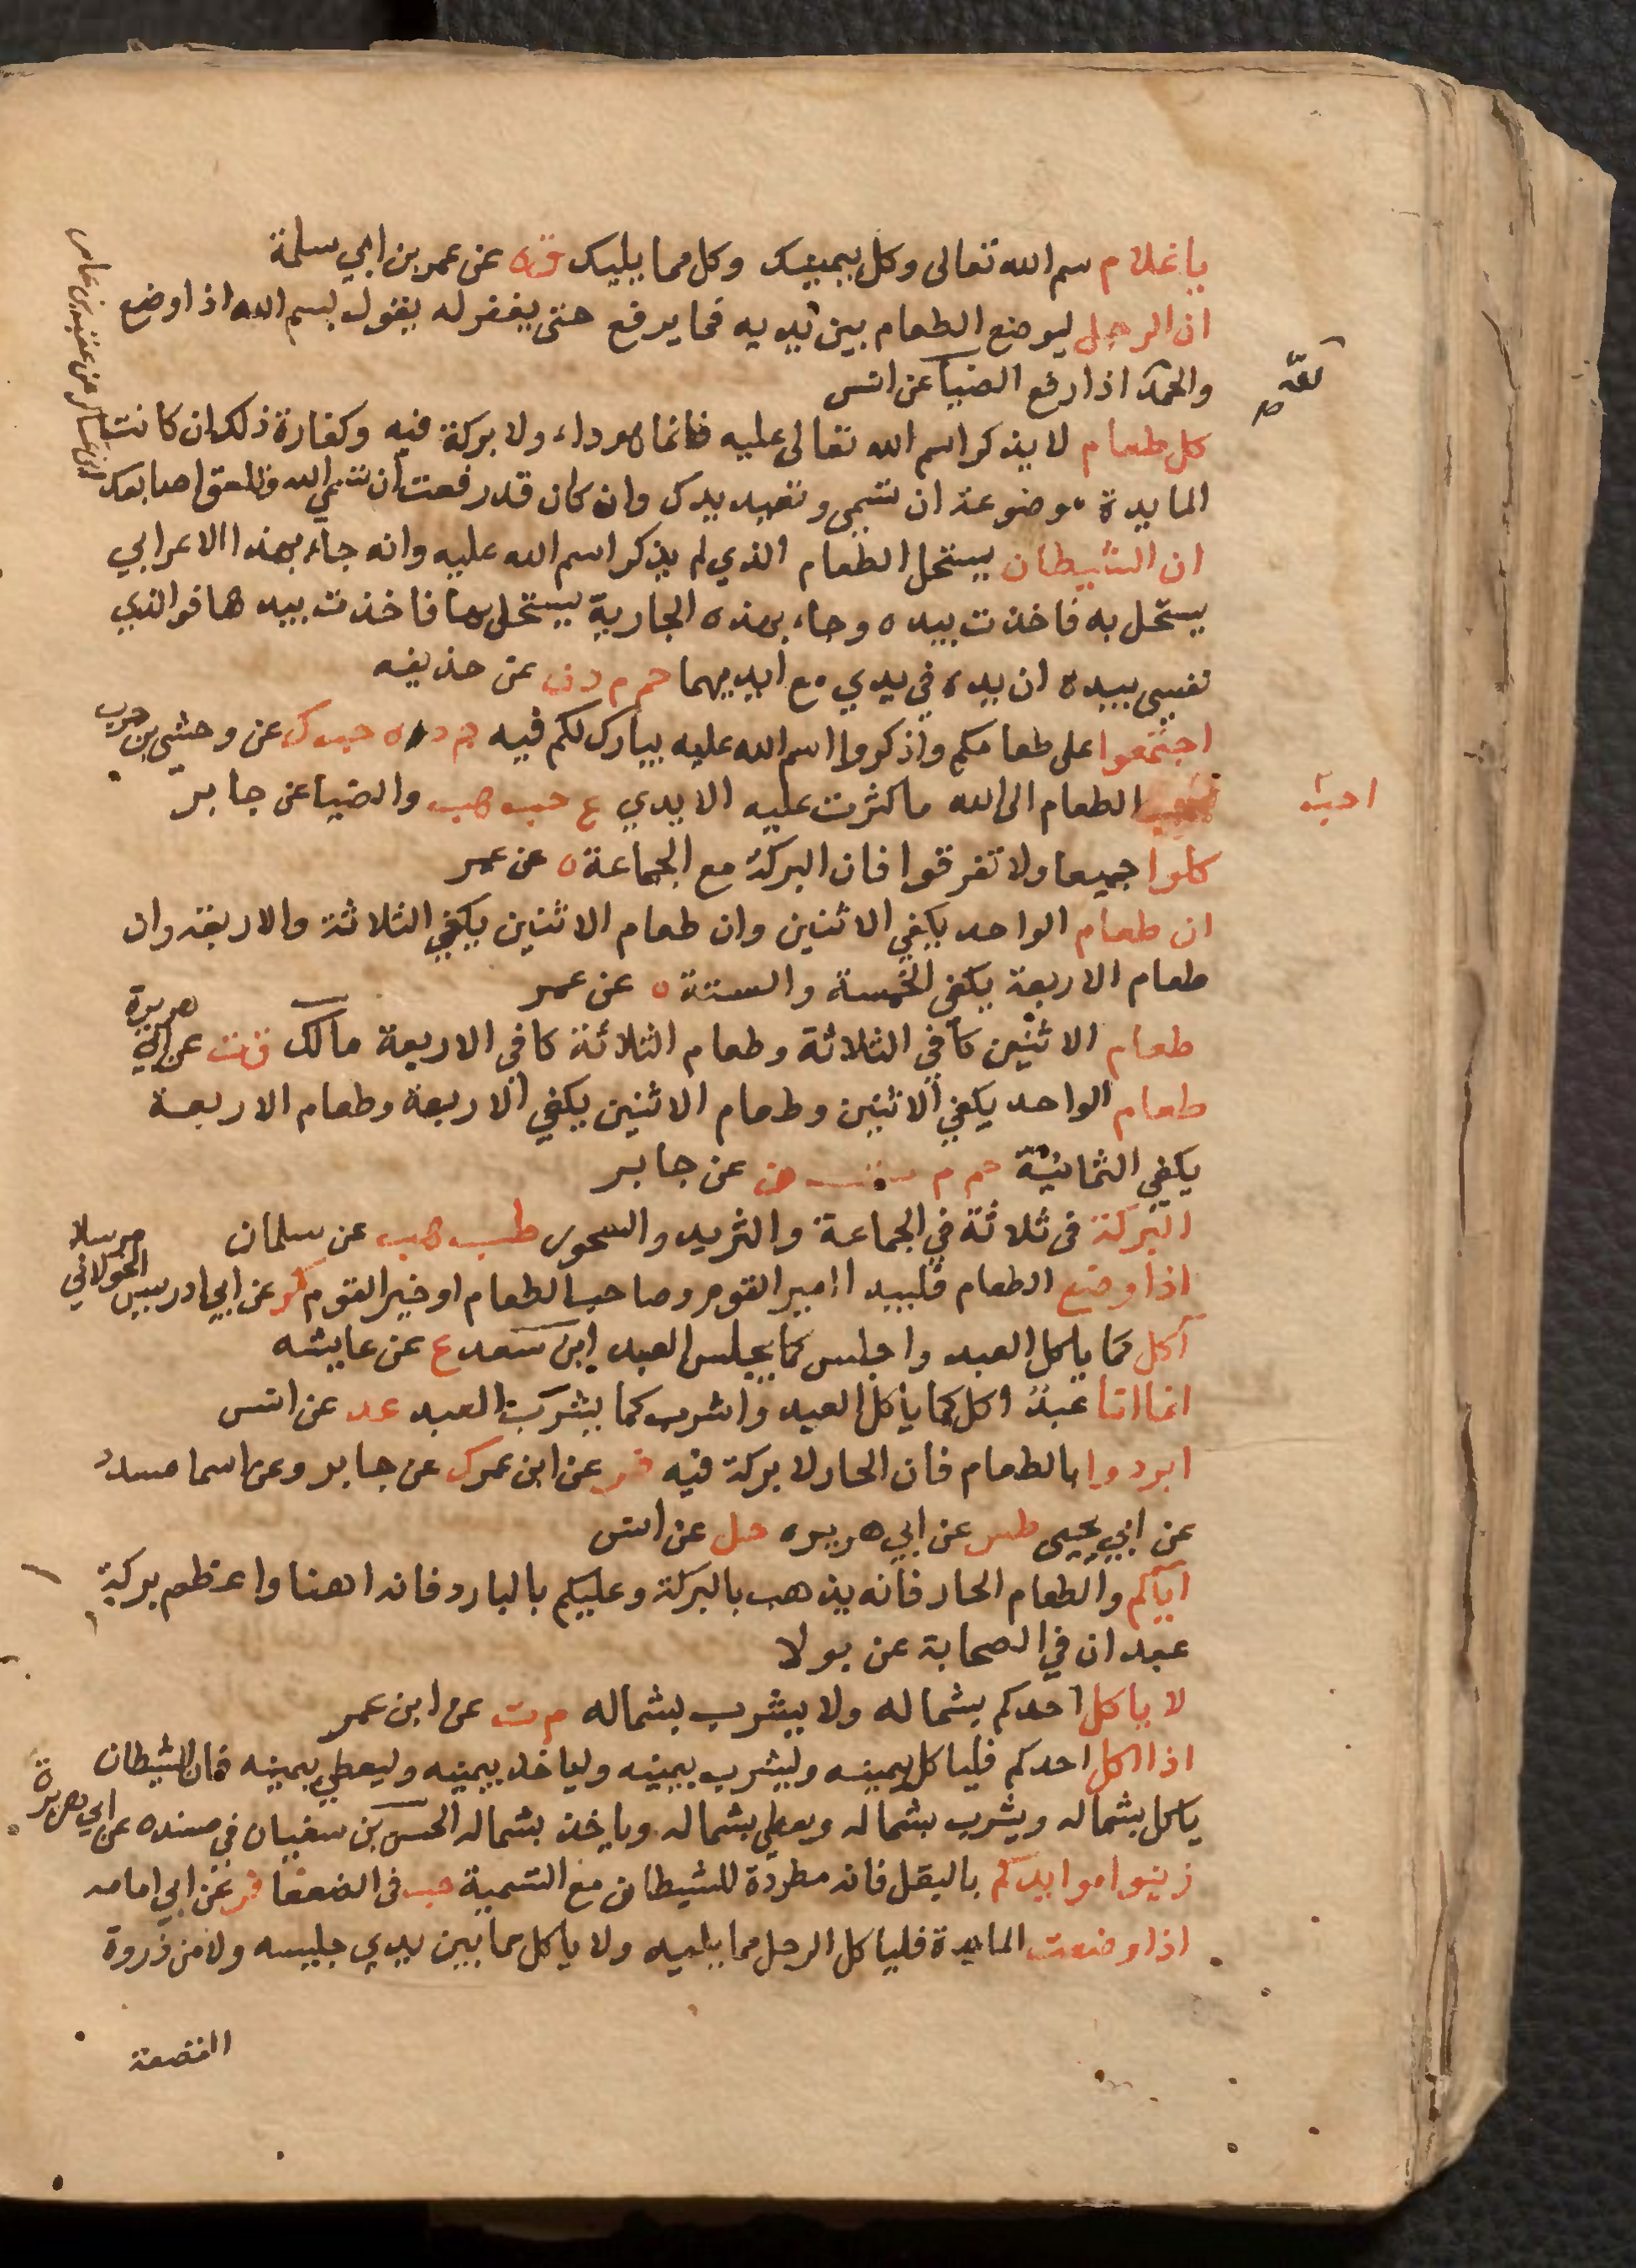 يا غلام سم الله تعالى وكل بيمينك وكل مما يليك ق ه عن عمر بن ابي سلمة
ان الرجل ليوضع الطعام بين يديه فما يرفع حتى يغفر له يقول بسم الله اذا وضع
والحمد لله اذا رفع الضيا عن انس
كل طعام لا يذكر اسم الله تعالى عليه فانما هو داء ولا بركة فيه وكفارة ذلك ان كانت
المايدة موضوعة ان تسمي وتعيد يدك وان كان قد رفعت ان تسمي الله وتلعق اصابعك
ابن عساكر عن عقبة بن عامر
ان الشيطان يستحل الطعام الذي لم يذكر اسم الله عليه وانه جاء بهذا الاعرابي
يستحل به فاخذت بيده وجاء بهذه الجارية يستحل بها فاخذت بيدها فوالذي
نفسي بيده ان يده في يدي مع ايديهما حم م د ن عن حذيفه
اجتمعوا على طعامكم واذكروا اسم الله عليه يبارك لكم فيه حم د ه حب ك عن وحشي بن حرب
احب
الطعام الى الله ما كثرت عليه الايدي ع حب هب والضيا عن جابر
كلوا جميعا ولا تفرقوا فان البركة مع الجماعة ه عن عمر
ان طعام الواحد يكفي الاثنين وان طعام الاثنين يكفي الثلاثة والاربعة وان
طعام الاربعة يكفي الخمسة والستة ه عن عمر
طعام الاثنين كافي الثلاثة وطعام الثلاثة كافي الاربعة مالك ق ت عن ابي هريرة
طعام الواحد يكفي الاثنين وطعام الاثنين يكفي الاربعة وطعام الاربعة
يكفي الثمانية حم م ت ن عن جابر
البركة في ثلاثة في الجماعة والثريد والسحور طب هب عن سلمان
اذا وضع الطعام فليبدا امير القوم وصاحب الطعام او خير القوم كر عن ابي ادريس الخولاني مرسلا
آكل كما ياكل العبد واجلس كما يجلس العبد ابن سعد ع عن عايشه
انما انا عبد اكل كما ياكل العبد واشرب كما يشرب العبد عد عن انس
ابردوا بالطعام فان الحار لا بركة فيه فر عن ابن عمر ك عن جابر وعن اسما مسدد
عن ابي يحيى طس عن ابي هريره حل عن انس
اياكم والطعام الحار فانه يذهب بالبركة وعليكم بالبارد فانه اهنا واعظم بركة
عبدان في الصحابة عن بولا
لا ياكل احدكم بشماله ولا يشرب بشماله م ت عن ابن عمر
اذا اكل احدكم فلياكل بيمينه وليشرب بيمينه ولياخذ بيمينه وليعطي بيمينه فان الشيطان
ياكل بشماله ويشرب بشماله ويعطي بشماله وياخذ بشماله الحسن بن سفيان في مسنده عن ابي هريرة
زينوا موايدكم بالبقل فانه مطردة للشيطان مع التسمية حب في الضعفا فر عن ابي امامه
اذا وضعت المايدة فلياكل الرجل مما يليه ولا ياكل مما بين يدي جليسه ولا من ذروة
القصعة